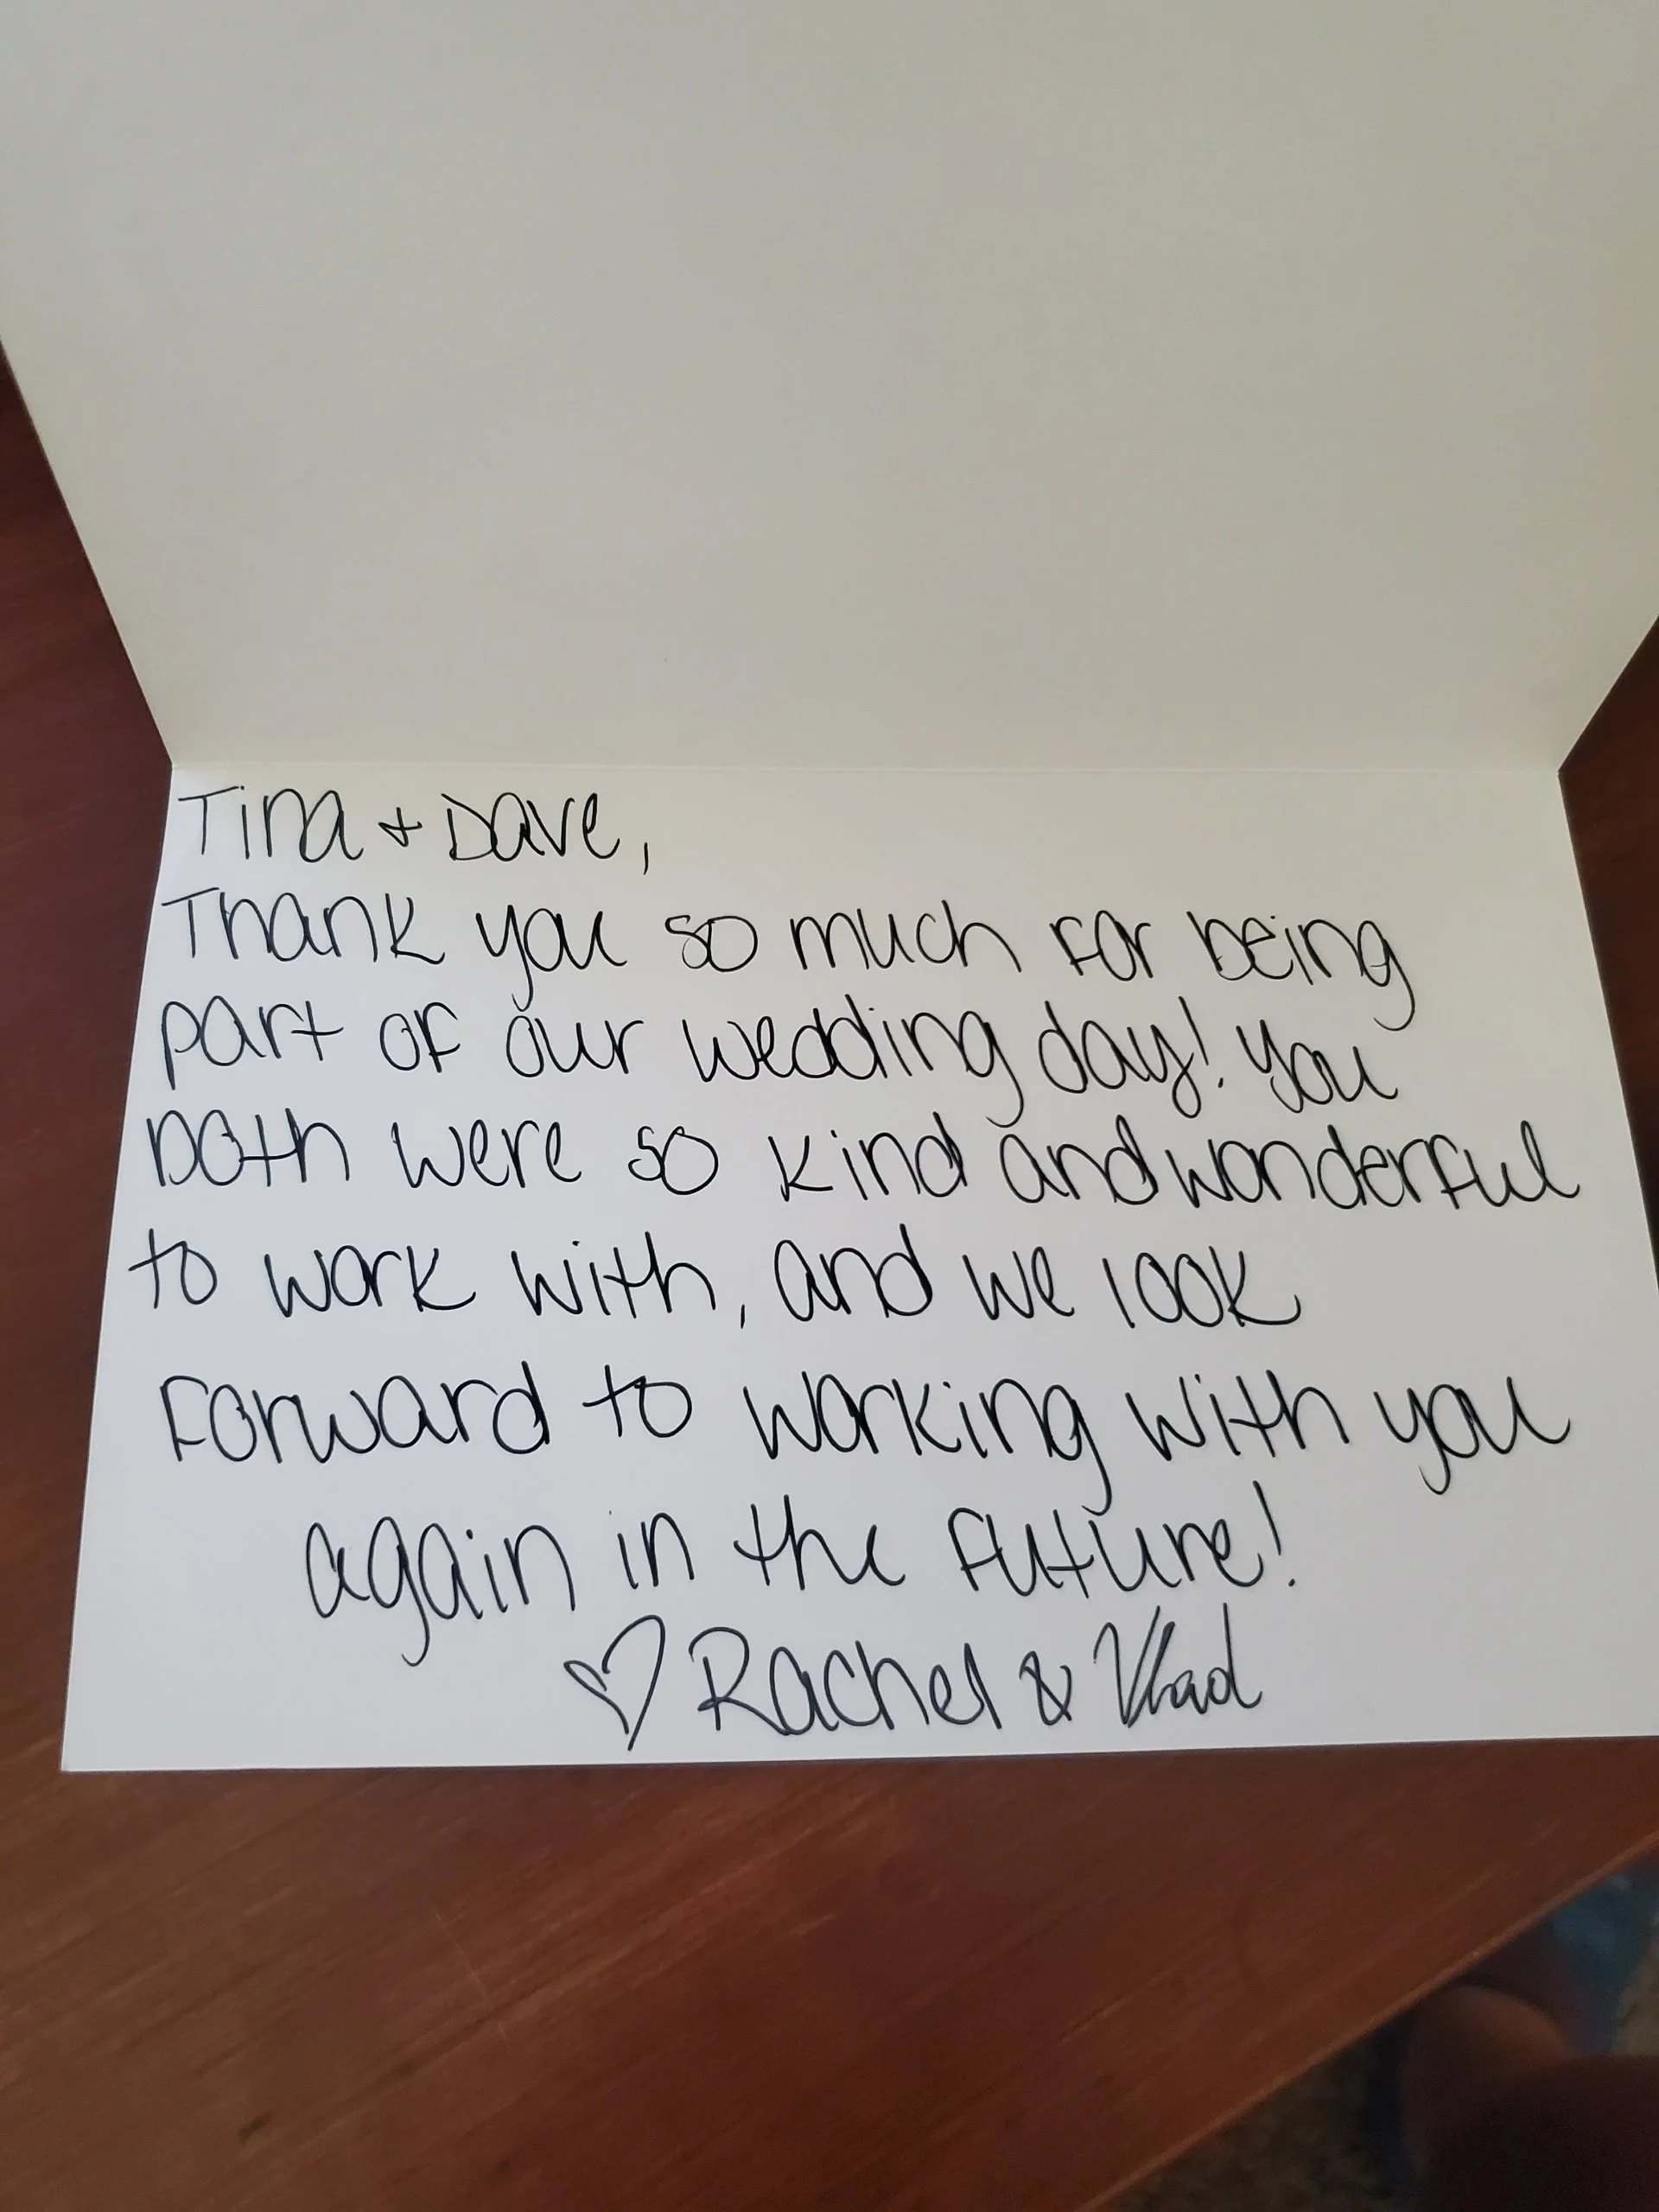 Tina + Dave,
Thank you so much for being
part of our wedding day! You
both were so kind and wonderful
to work with, and we look
forward to working with you
again in the future!
♡ Rachel & Vlad